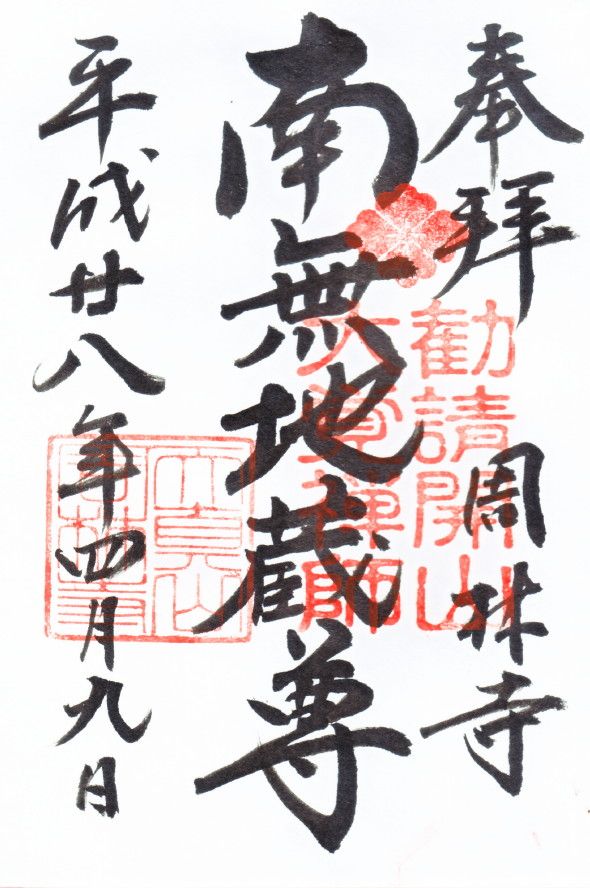 奉拝
周林寺
勧請開山
大覚禅師
南無地蔵尊
平成廿八年四月九日
周林寺